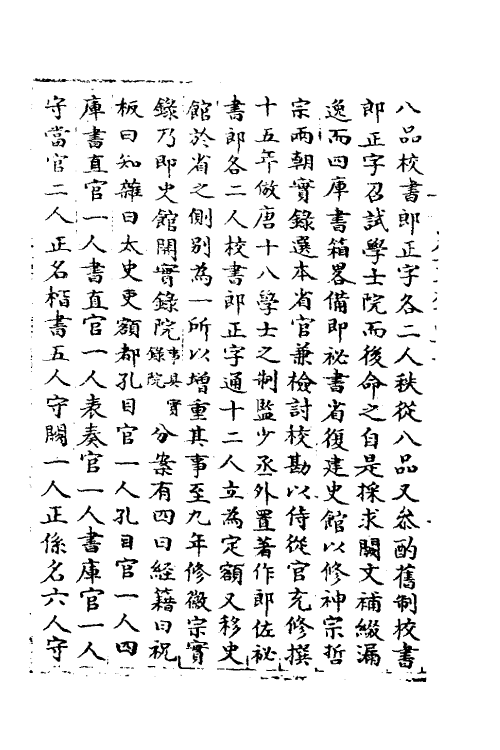 八品校書郎正字各二人秩從八品又叅酌舊制校書
郎正字召試學士院而後命之自是採求闕文補綴漏
逸而四庫書箱畧備即祕書省復建史館以修神宗哲
宗兩朝實錄選本省官兼檢討校勘以侍從官充修撰
十五年倣唐十八學士之制監少丞外置著作郎佐祕
書郎各二人校書郎正字通十二人立為定額又移史
館於省之側别為一所以增重其事至九年修徽宗實
錄乃即史館開實錄院事具實錄院分案有四曰經籍曰祝
板曰知雜曰太史吏額都孔目官一人孔目官一人四
庫書直官一人書直官一人表奏官一人書庫官一人
守當官二人正名楷書五人守闕一人正係名六人守